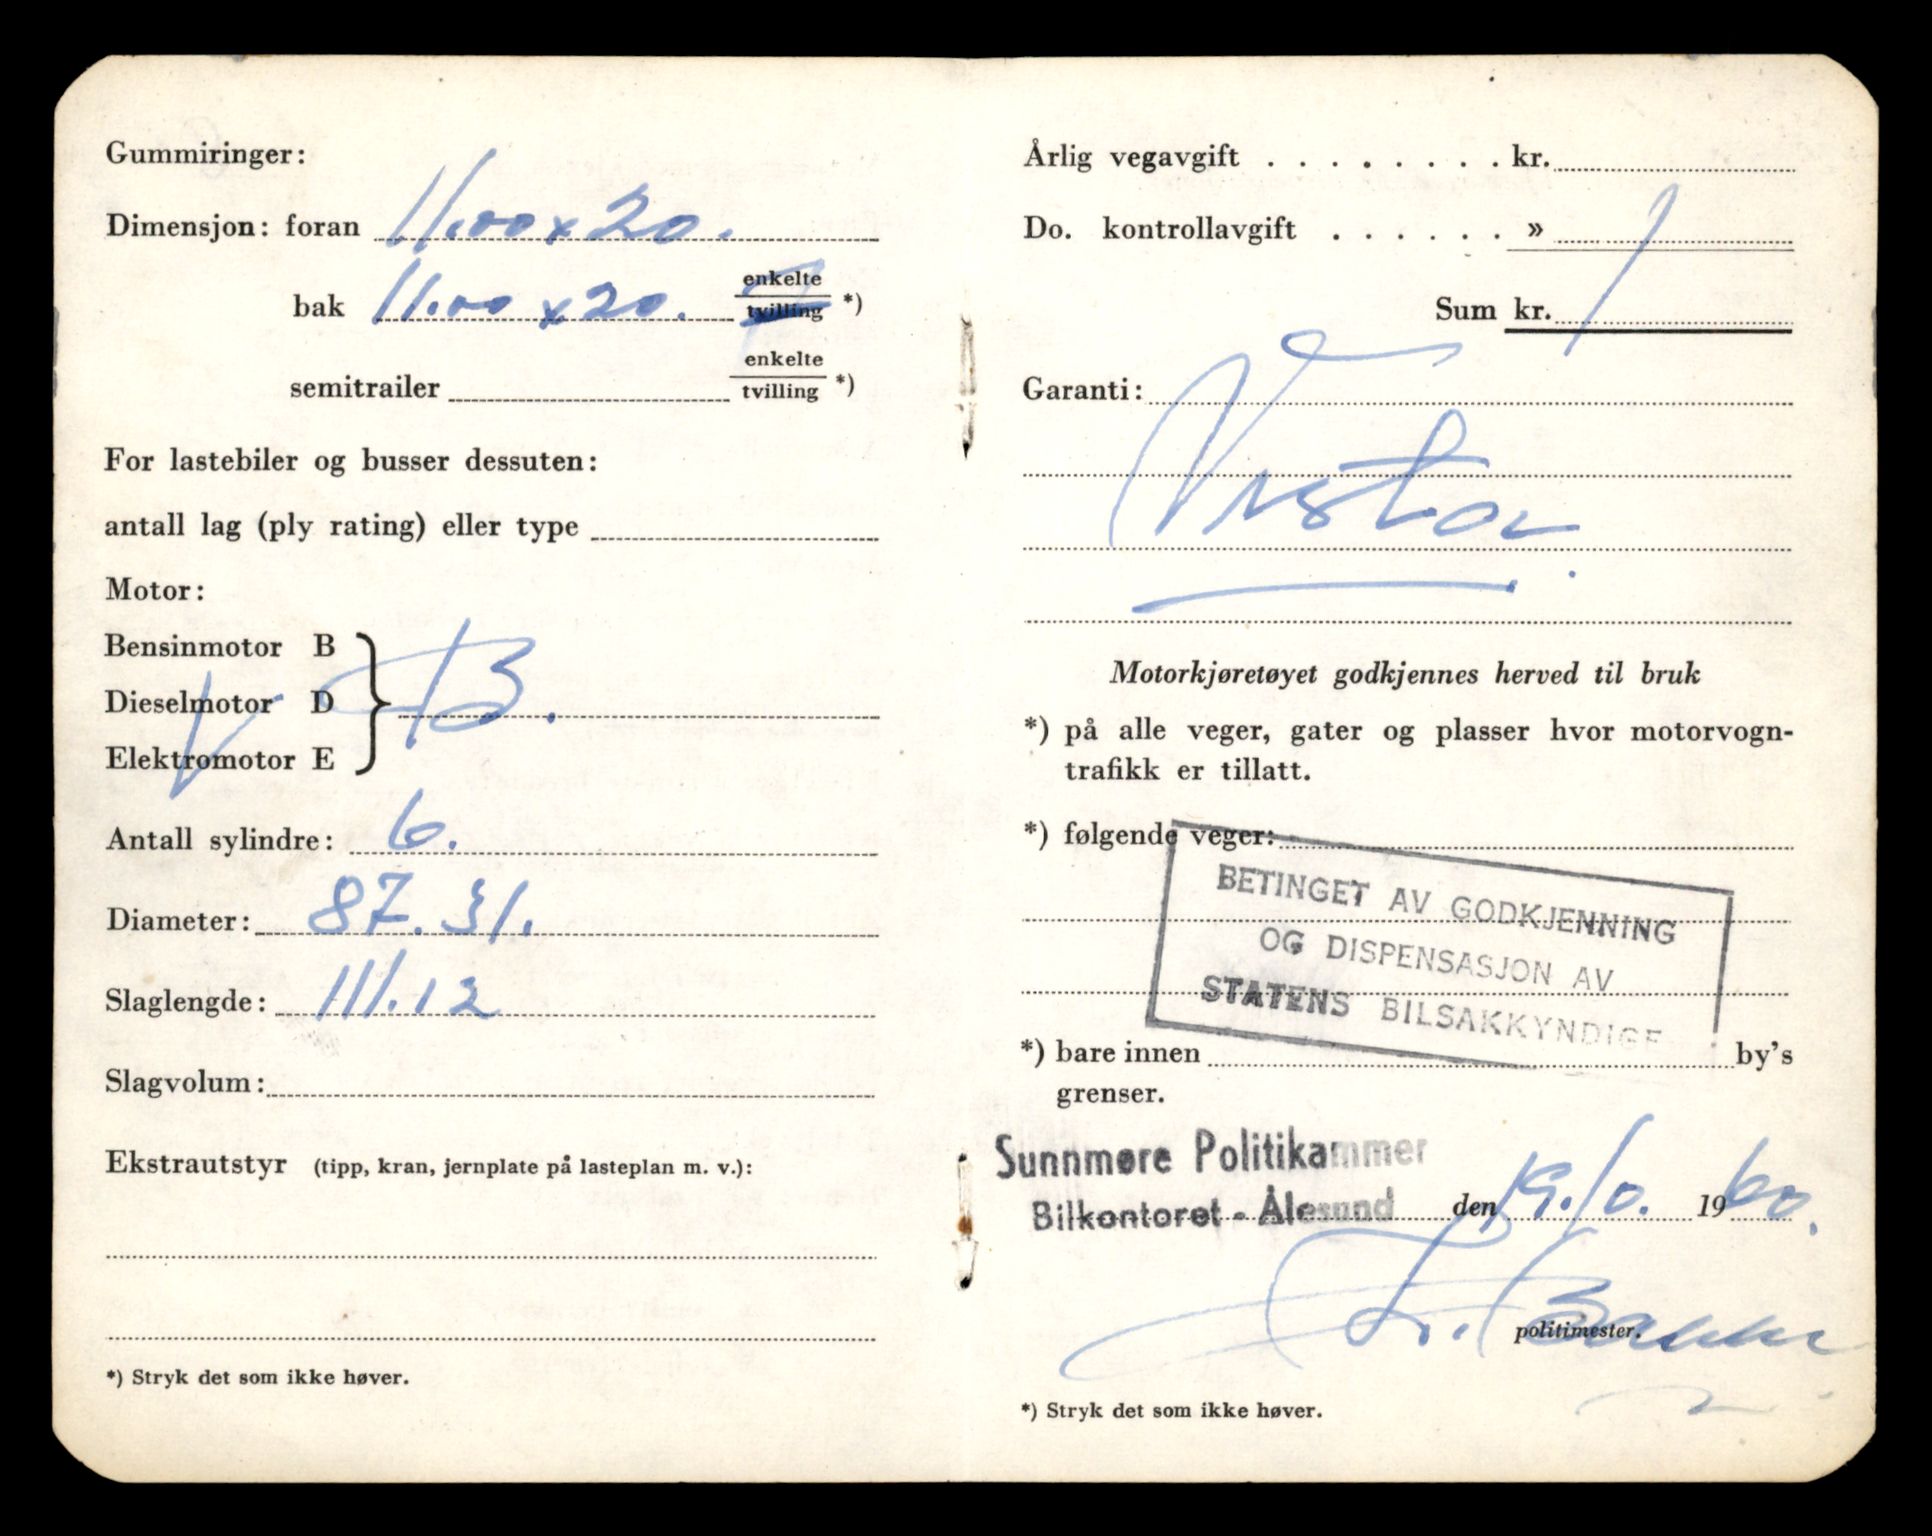 Gummiringer:
Dimensjon: foran 11.00 x 20.
bak 11.00 x 20. enkelte
tvilling *)
semitrailer enkelte
tvilling *)
For lastebiler og busser dessuten:
antall lag (ply rating) eller type
Motor:
Bensinmotor B
Dieselmotor D
Elektromotor E
B.
Antall sylindre: 6.
Diameter: 87.31.
Slaglengde: 111.12
Slagvolum:
Ekstrautstyr (tipp, kran, jernplate på lasteplan m. v.):
*) Stryk det som ikke høver.
Årlig vegavgift . . . . . . . . kr.
Do. kontrollavgift . . . . . . »
Sum kr.
Garanti:
Motorkjøretøyet godkjennes herved til bruk
*) på alle veger, gater og plasser hvor motorvogn-
trafikk er tillatt.
*) følgende veger:
BETINGET AV GODKJENNING
OG DISPENSASJON AV
STATENS BILSAKKYNDIGE
*) bare innen by's
grenser.
Sunnmøre Politikammer
Bilkontoret - Ålesund den 19.10. 1960.
politimester.
*) Stryk det som ikke høver.